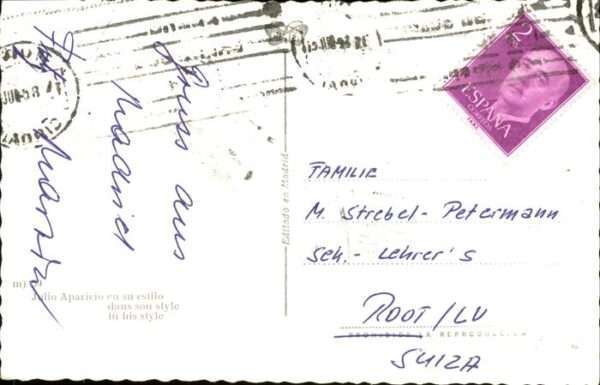 Gruss aus
Madrid
2
ESPAÑA
CORREOS
Editado en Madrid
FAMILIE
M. Strebel - Petermann
Sek. - Lehrer's
ROOT/LU
SUIZA
PROHIBIDA LA REPRODUCCION
Julio Aparicio en su estilo
dans son style
in his style